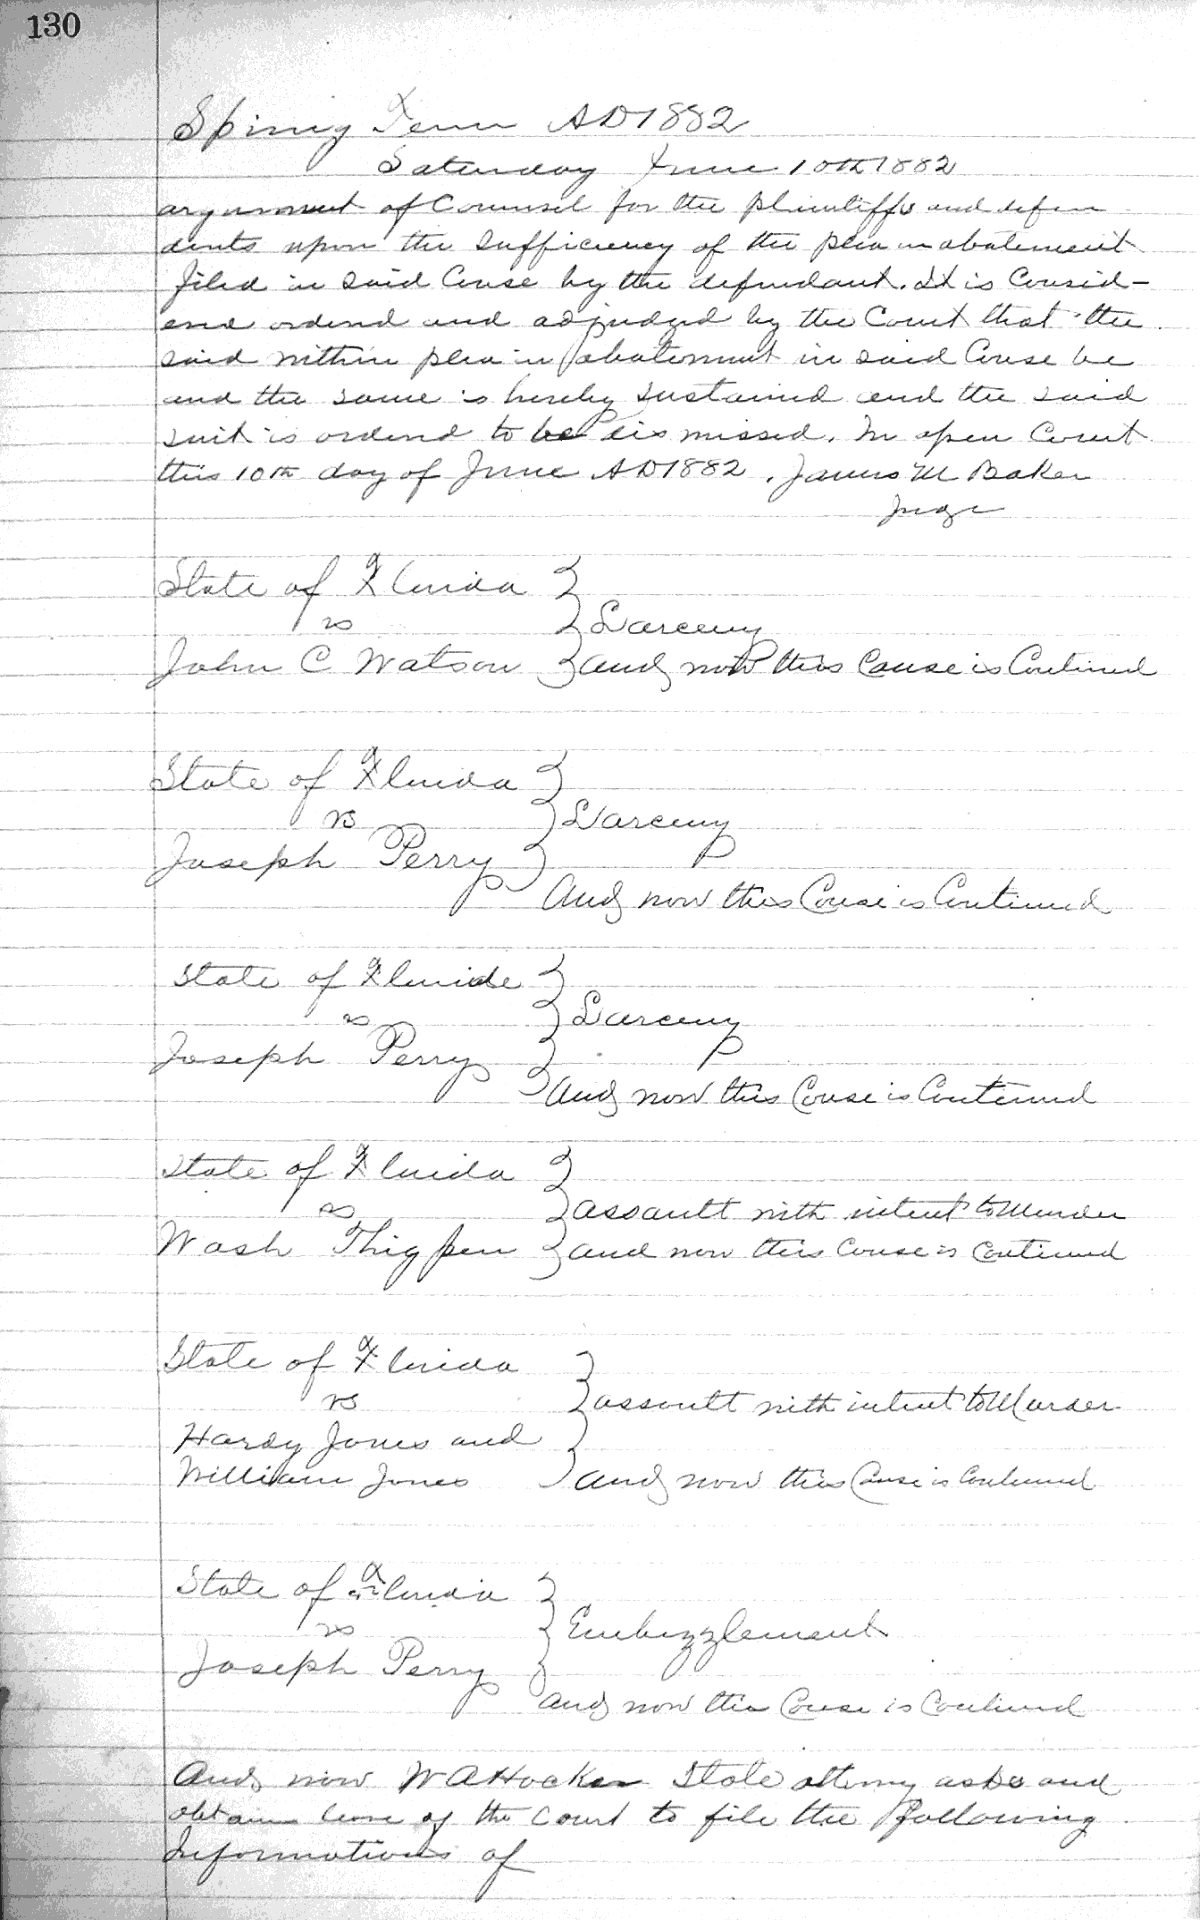 130
Spring Term AD 1882
Saturday June 10th 1882
argument of Counsel for the plaintiffs and defen
dents upon the sufficiency of the plea in abatement
filed in said Cause by the defendant. It is Consid-
erd orderd and adjudged by the Court that the
said within plea in abatement in said Cause be
and the same is hereby sustained and the said
suit is orderd to be dismissed. In open Court
this 10th day of June AD 1882. James M Baker
Judge
State of Florida
vs
Larceny
John C Watson
and now this Cause is Continued
State of Florida
vs
Larceny
Joseph Perry
And now this Cause is Continued
State of Florida
vs
Larceny
Joseph Perry
And now this Cause is Continued
State of Florida
vs
assault with intent to Murder
Wash Thigpen
and now this Cause is Continued
State of Florida
vs
assault with intent to Murder
Hardy Jones and
William Jones
and now this Cause is Continued
State of Florida
vs
Embezzlement
Joseph Perry
and now this Cause is Continued
And now W A Hocker State attorny asks and
obtains leave of the Court to file the following
Informations of